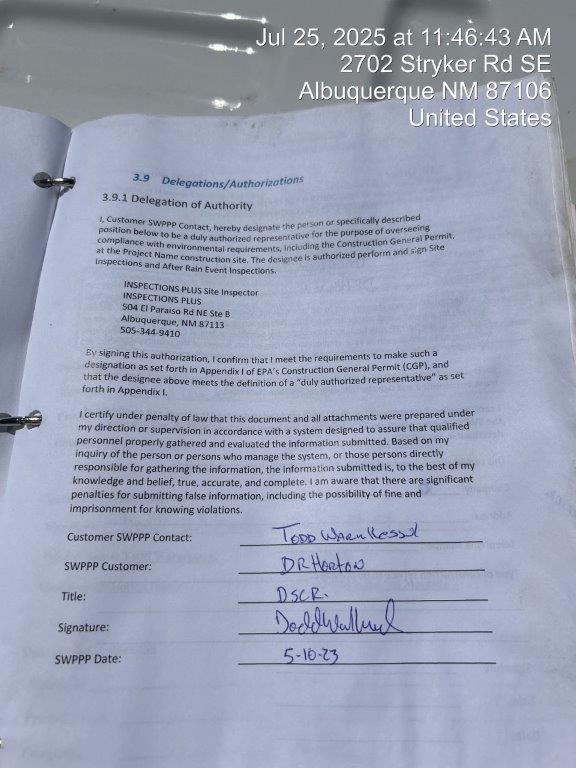 Jul 25, 2025 at 11:46:43 AM
2702 Stryker Rd SE
Albuquerque NM 87106
United States
3.9 Delegations/Authorizations
3.9.1 Delegation of Authority
I, Customer SWPPP Contact, hereby designate the person or specifically described
position below to be a duly authorized representative for the purpose of overseeing
compliance with environmental requirements, including the Construction General Permit,
at the Project Name construction site. The designee is authorized perform and sign Site
Inspections and After Rain Event Inspections.
INSPECTIONS PLUS Site Inspector
INSPECTIONS PLUS
504 El Paraiso Rd NE Ste B
Albuquerque, NM 87113
505-344-9410
By signing this authorization, I confirm that I meet the requirements to make such a
designation as set forth in Appendix I of EPA's Construction General Permit (CGP), and
that the designee above meets the definition of a "duly authorized representative" as set
forth in Appendix I.
I certify under penalty of law that this document and all attachments were prepared under
my direction or supervision in accordance with a system designed to assure that qualified
personnel properly gathered and evaluated the information submitted. Based on my
inquiry of the person or persons who manage the system, or those persons directly
responsible for gathering the information, the information submitted is, to the best of my
knowledge and belief, true, accurate, and complete. I am aware that there are significant
penalties for submitting false information, including the possibility of fine and
imprisonment for knowing violations.
Customer SWPPP Contact: TODD
SWPPP Customer: DR HORTON
Title: DSCR.
Signature:
SWPPP Date: 5-10-23